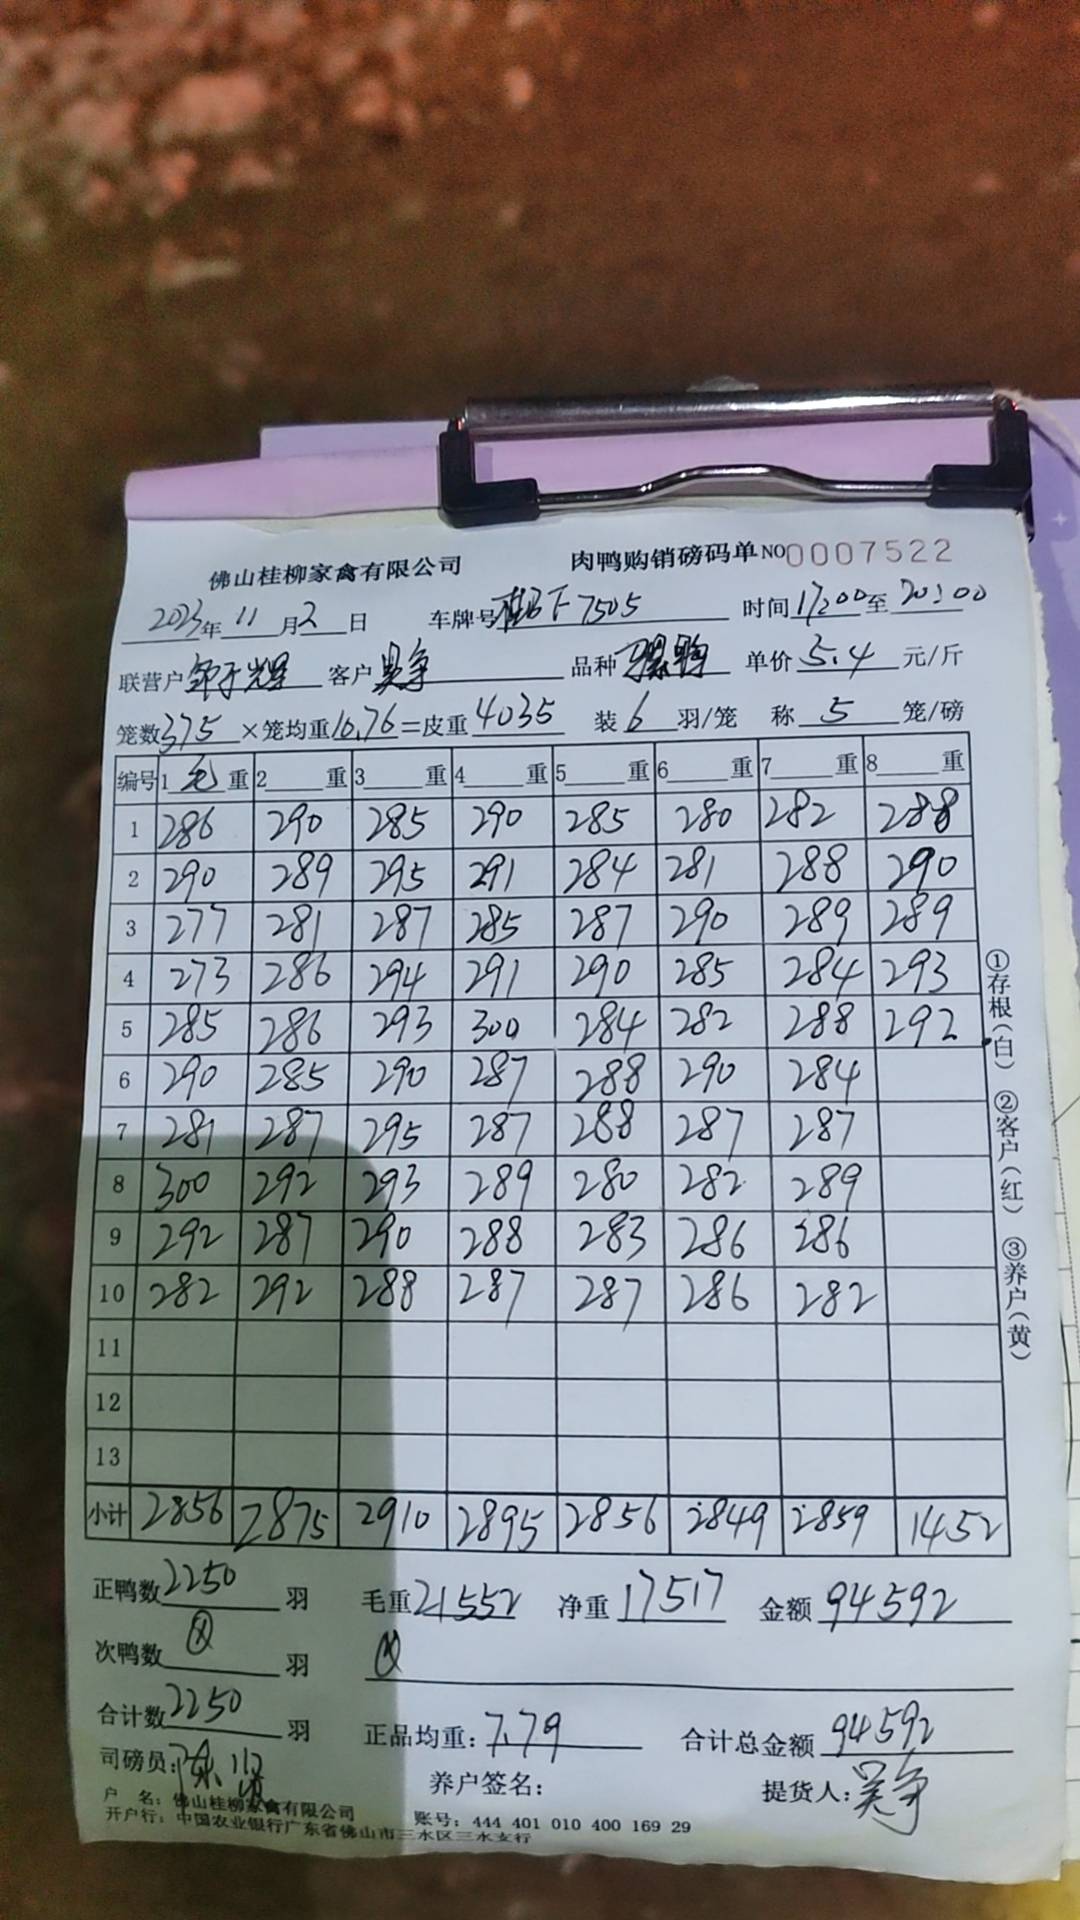 佛山桂柳家禽有限公司 肉鸭购销磅码单 NO 0007522
2023年 11月2日 车牌号 7505 时间 17:00至20:00
联营户 客户 吴争 品种 骡鸭 单价 5.4 元/斤
笼数 375 ×笼均重 10.76 =皮重 4035 装 6 羽/笼 称 5 笼/磅
编号 1 毛 重 2 重 3 重 4 重 5 重 6 重 7 重 8 重
1 286 290 285 290 285 280 282 288
2 290 289 295 291 284 281 288 290
3 277 281 287 285 287 290 289 289
4 273 286 294 291 290 285 284 293
5 285 286 293 300 284 282 288 292
6 290 285 290 287 288 290 284
7 281 287 295 287 288 287 287
8 300 292 293 289 280 282 289
9 292 287 290 288 283 286 286
10 282 292 288 287 287 286 282
11
12
13
小计 2856 2875 2910 2895 2856 2849 2859 1452
正鸭数 2250 羽 毛重 21552 净重 17517 金额 94592
次鸭数 ⊗ 羽 ⊗
合计数 2250 羽 正品均重: 7.79 合计总金额 94592
司磅员: 陈 养户签名: 提货人: 吴争
户 名: 佛山桂柳家禽有限公司 账号: 444 401 010 400 169 29
开户行: 中国农业银行广东省佛山市三水区三水支行
①存根(白) ②客户(红) ③养户(黄)